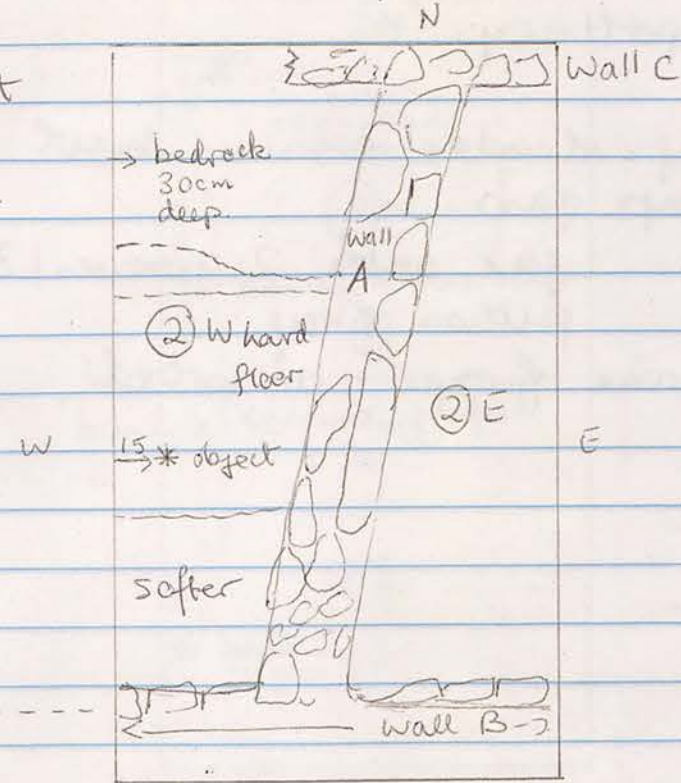 N
t
Wall C
→ bedrock
30cm
deep
Wall
A
② W hard
floor
② E
W
15 * object
E
softer
Wall B